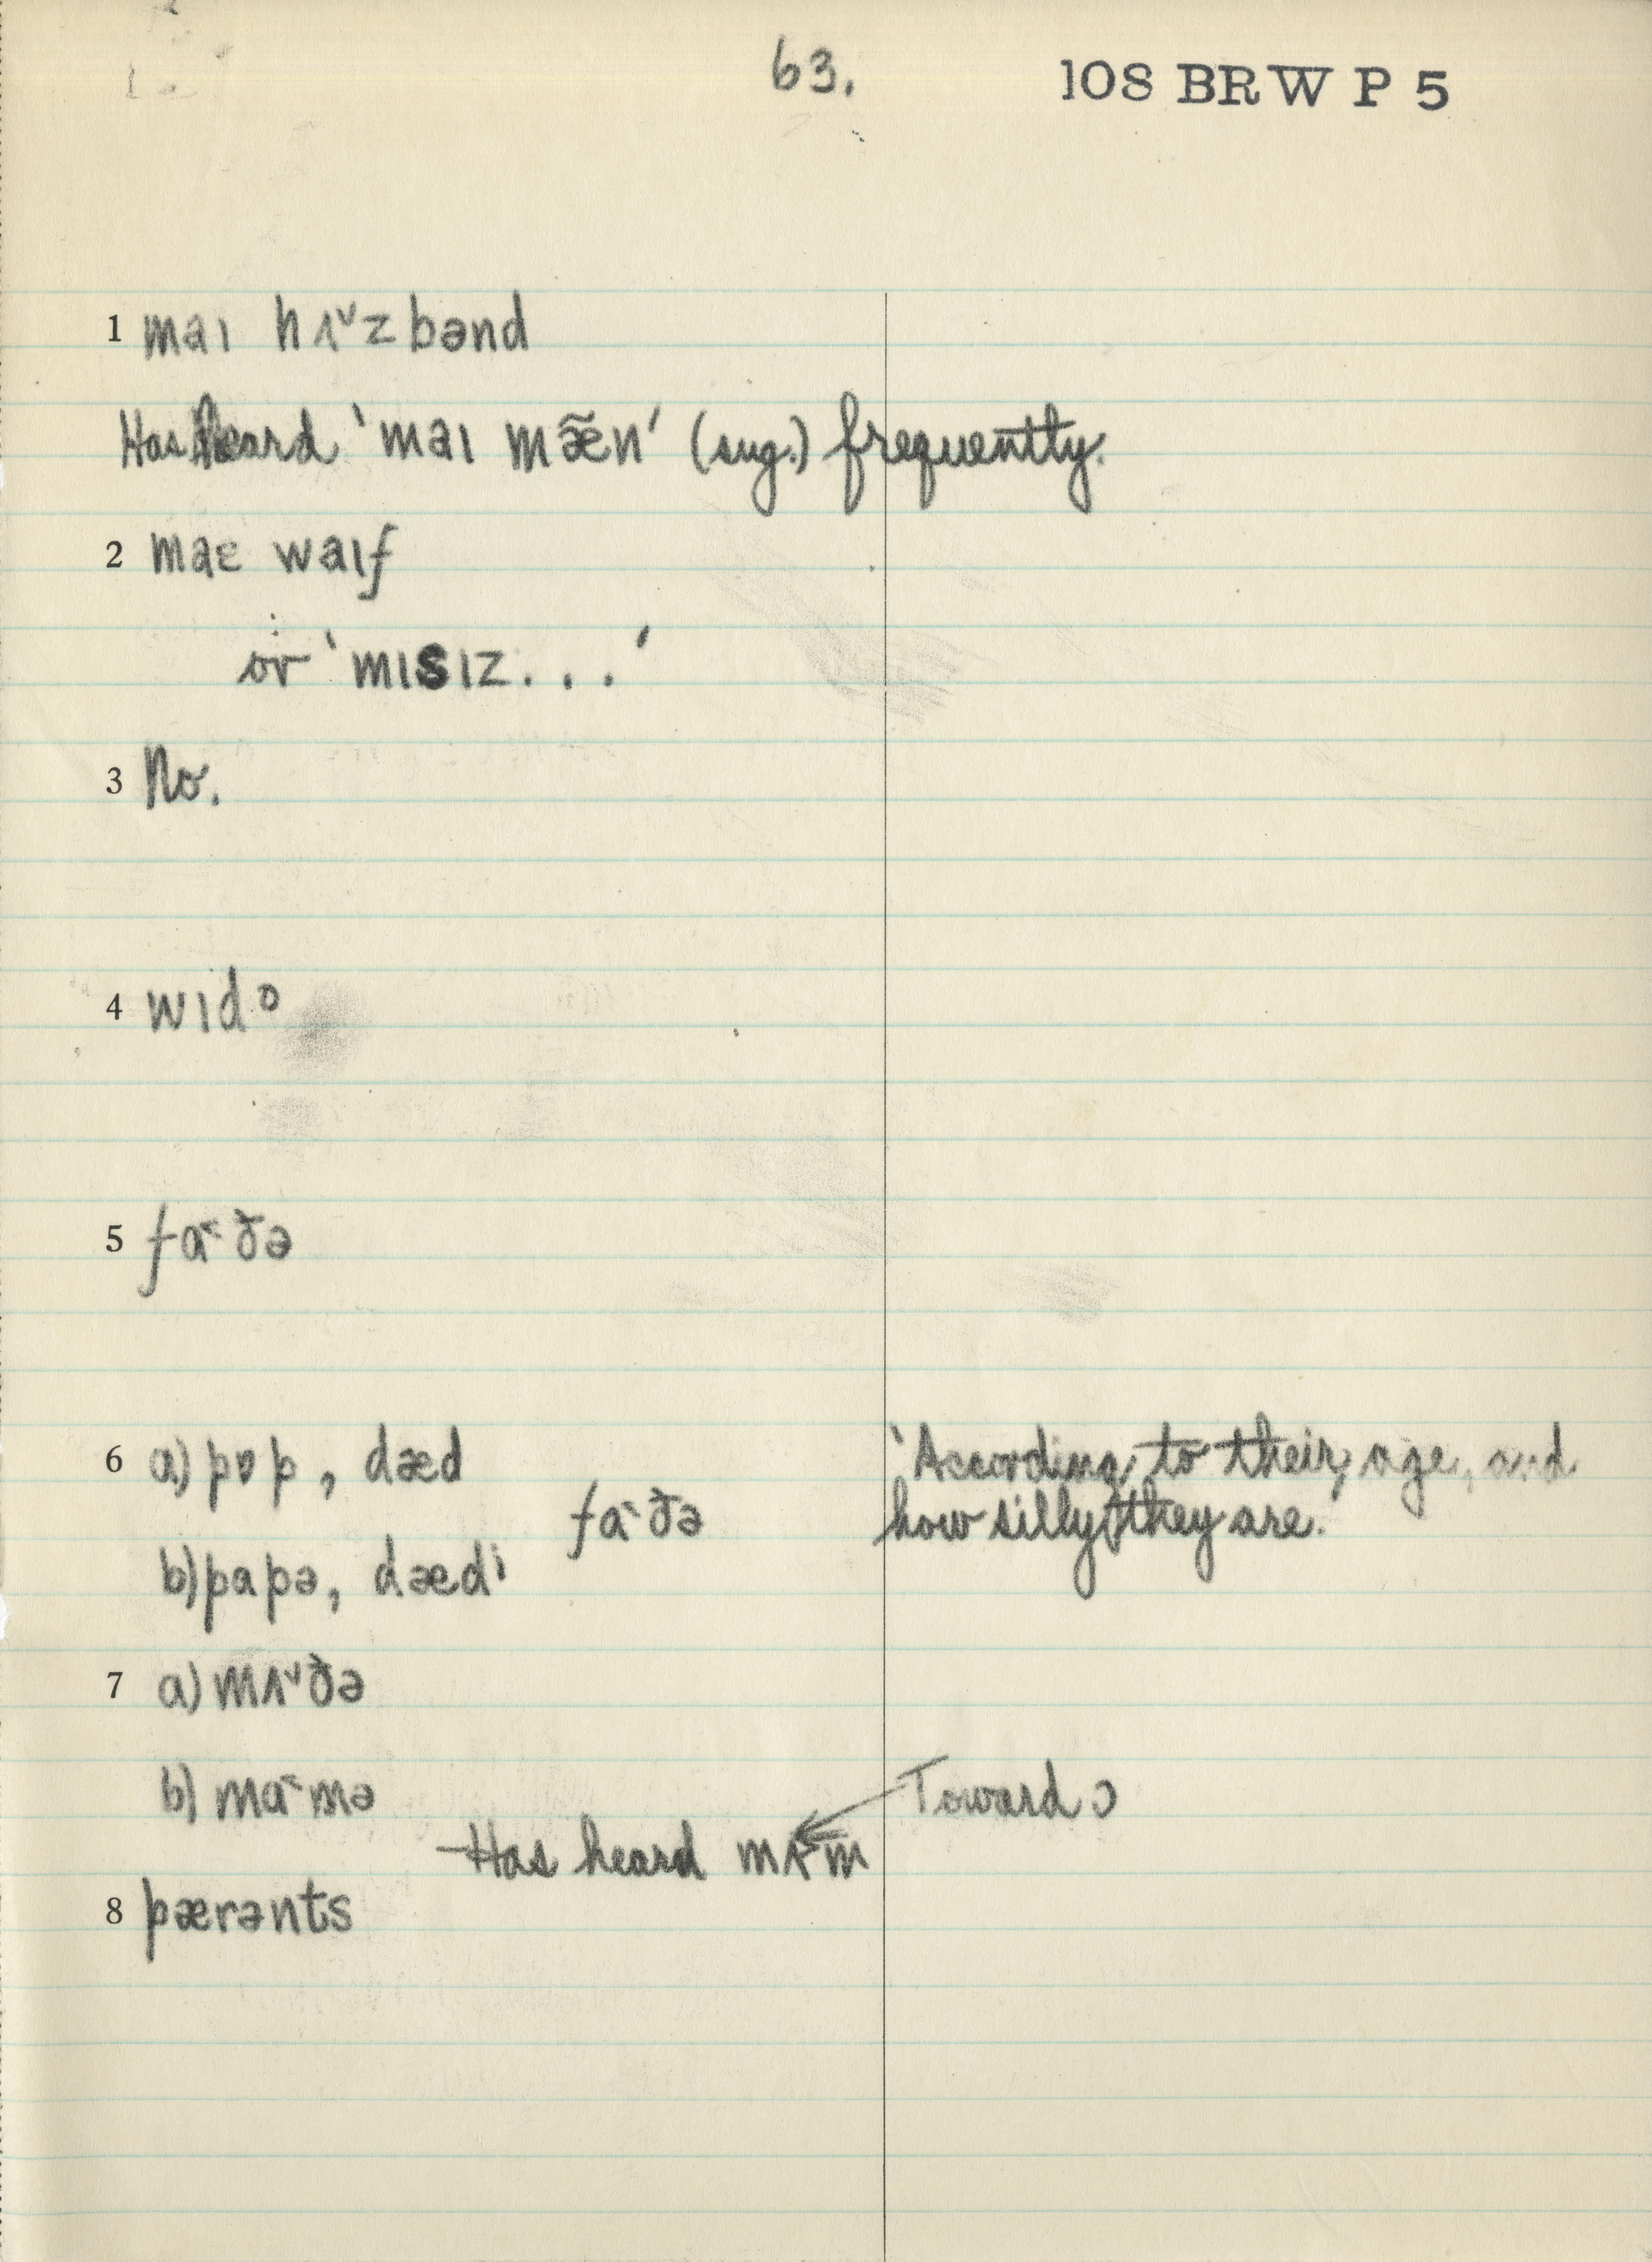 63.
108 BRW P 5
1 maɪ hʌ˅zbənd
Has heard ‘maɪ mæ̃n’ (sug.) frequently.
2 maɛ waɪf
or ‘mɪsɪz...’
3 No.
4 wɪdᵒ
5 fɑ˂ðə
6 a) pɒp, dæd
‘According to their age, and
fɑ˂ðə
how silly they are.’
b) papə, dædⁱ
7 a) mʌ˅ðə
b) mɑ˂mə
Toward ɔ
Has heard mʌ˃m
8 pærənts